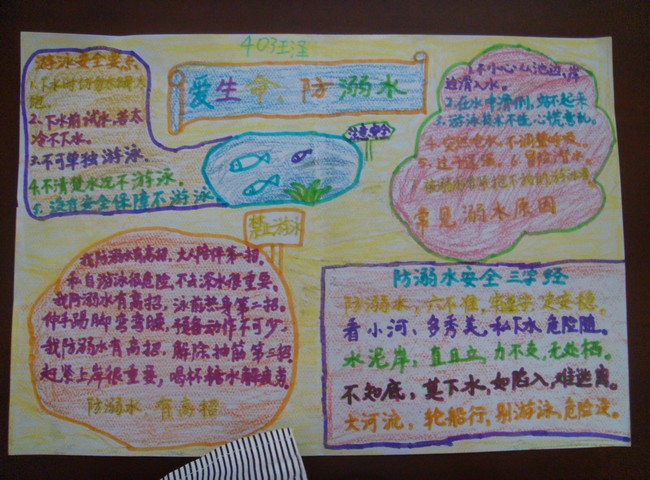 403王泽
爱生命，防溺水
游泳安全要点
1.下水时切
地。
2.下水前试水，若太
冷不下水。
3.不可单独游泳。
4.不清楚水况不游泳。
5.没有安全保障不游泳
注意安全
禁止游泳
不小心从池边、岸
边滑入水。
2.在水中滑倒，站不起来
3.游泳技术不佳，心慌意乱。
4.突然呛水，不调整呼吸。
5.过于逞强。6.冒险潜水。
常见溺水原因
我防溺水有高招，大人陪伴第一招，
私自游泳很危险，不去深水很重要。
我防溺水有高招，泳前热身第二招。
伸手踢脚弯弯腰，预备动作不可少，
我防溺水有高招，解除抽筋第三招
赶紧上岸很重要，喝杯糖水解疲劳。
防溺水 有高招
防溺水安全三字经
防溺水，六不准，牢遵守，安安稳。
看小河，多秀美，私下水，危险随。
水泥岸，直且立，力不支，无处栖。
不知底，莫下水，如陷入，难逃离。
大河流，轮船行，别游泳，危险没。